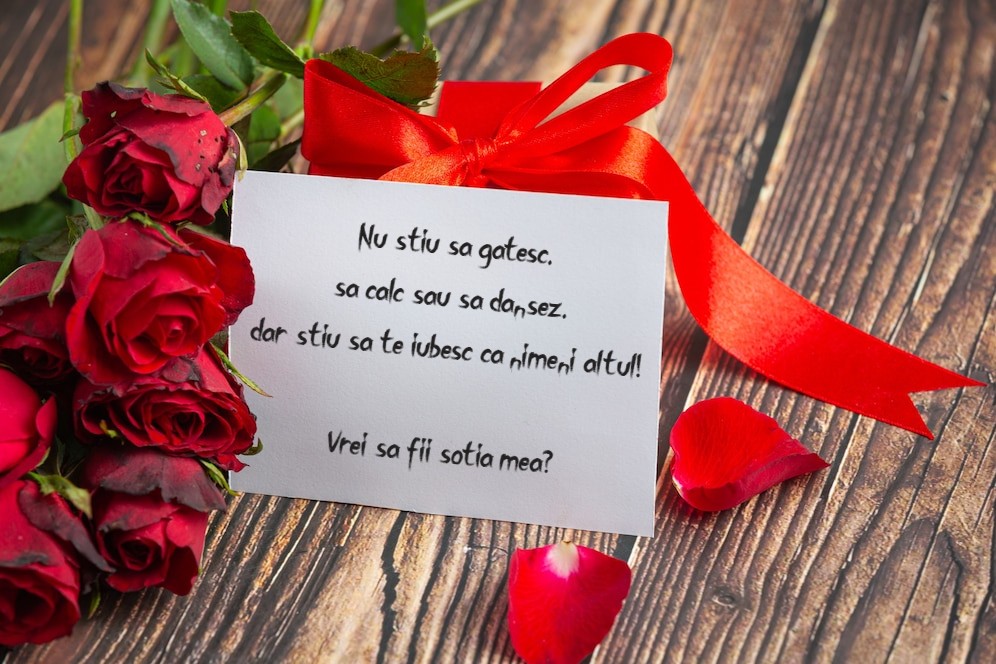 Nu stiu sa gatesc.
sa calc sau sa dansez.
dar stiu sa te iubesc ca nimeni altul!
Vrei sa fii sotia mea?